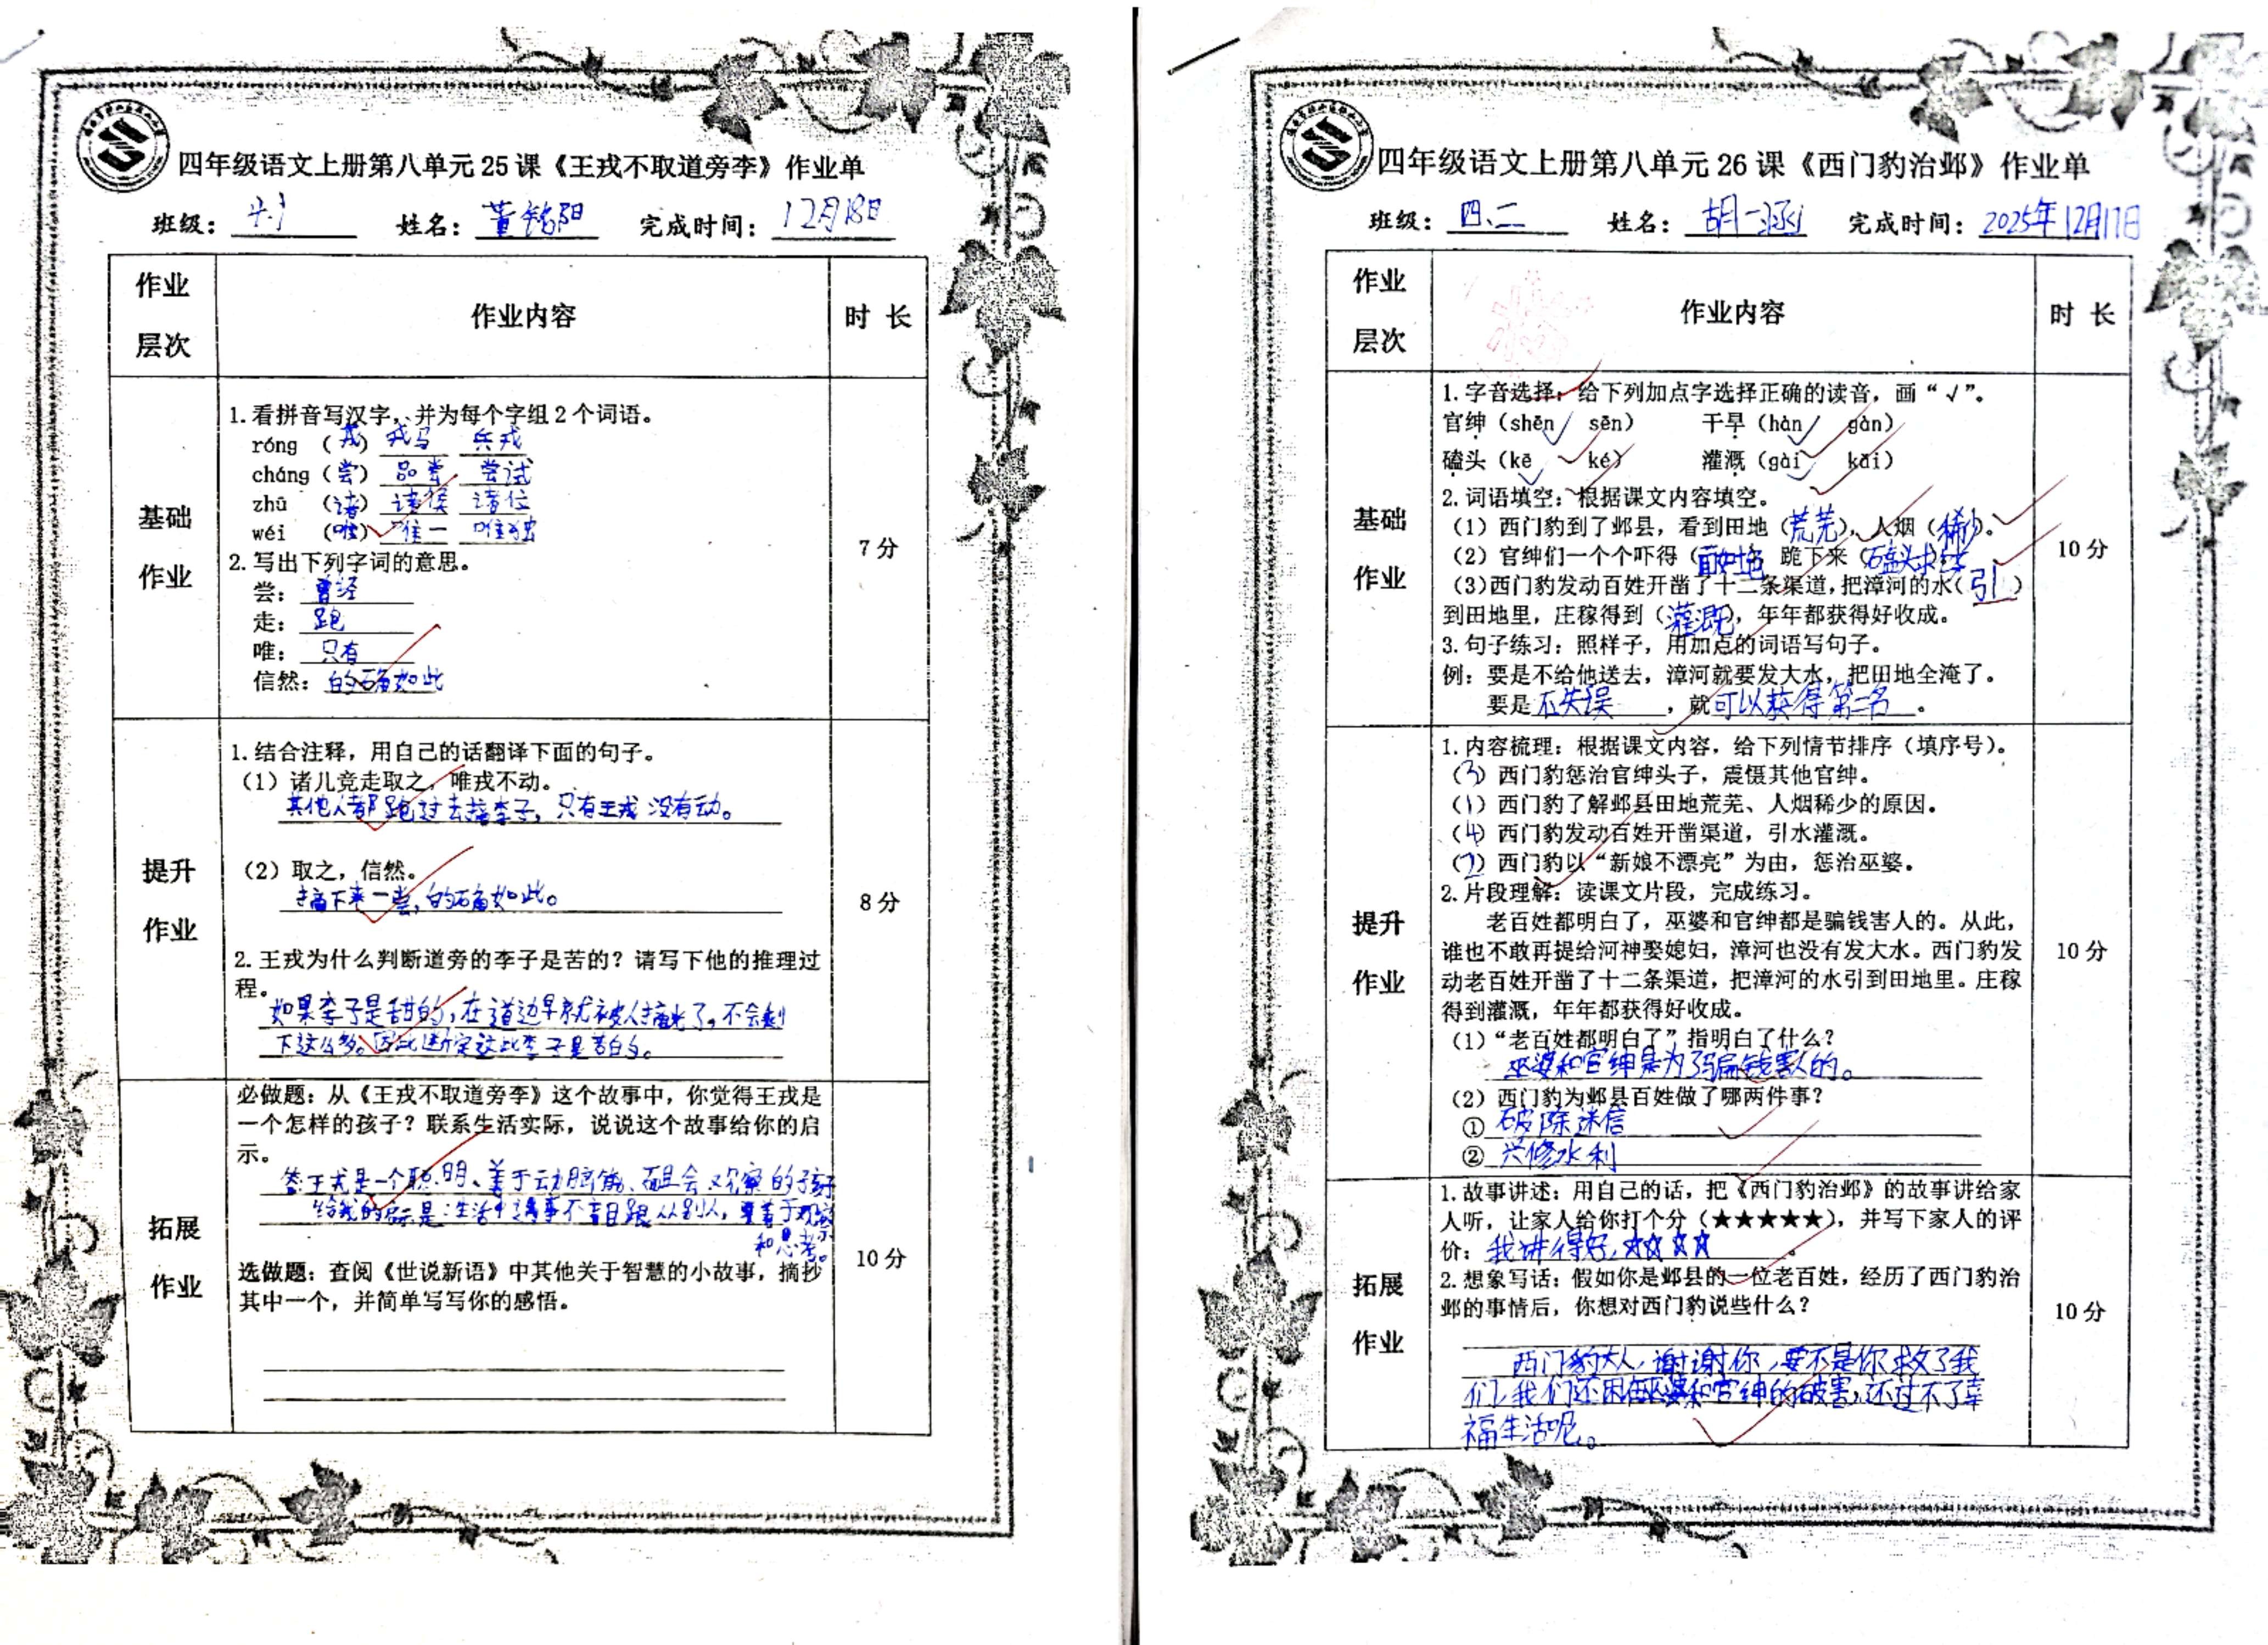 四年级语文上册第八单元25课《王戎不取道旁李》作业单
班级： 姓名：董铭阳 完成时间：12月18日
作业层次 作业内容 时 长
基础作业
1.看拼音写汉字，并为每个字组2个词语。
róng （戎） 戎马 兵戎
cháng（尝） 品尝 尝试
zhū （诸） 诸侯 诸位
wéi （唯） 唯一 唯独
2.写出下列字词的意思。
尝：曾经
走：跑
唯：只有
信然：的确如此
7分
提升作业
1.结合注释，用自己的话翻译下面的句子。
（1）诸儿竞走取之，唯戎不动。
其他人都跑过去摘李子，只有王戎没有动。
（2）取之，信然。
摘下来一尝，的确如此。
2.王戎为什么判断道旁的李子是苦的？请写下他的推理过
程。
如果李子是甜的，在道边早就被人摘光了，不会剩
下这么多。因此断定这些李子是苦的。
8分
拓展作业
必做题：从《王戎不取道旁李》这个故事中，你觉得王戎是
一个怎样的孩子？联系生活实际，说说这个故事给你的启
示。
答王戎是一个聪明、善于动脑筋、会观察的孩子
给我的启示是：生活中遇事不盲目跟从别人，要善于观察
和思考。
选做题：查阅《世说新语》中其他关于智慧的小故事，摘抄
其中一个，并简单写写你的感悟。
10分
四年级语文上册第八单元26课《西门豹治邺》作业单
班级：四、二 姓名：胡一涵 完成时间：2025年12月17日
作业层次 作业内容 时 长
基础作业
1.字音选择：给下列加点字选择正确的读音，画“√”。
官绅（shēn√ sēn） 干旱（hàn√ gàn）
磕头（kē√ ké） 灌溉（gài√ kǎi）
2.词语填空：根据课文内容填空。
（1）西门豹到了邺县，看到田地（荒芜），人烟（稀少）。
（2）官绅们一个个吓得（面如土色 跪下来（磕头求饶
（3）西门豹发动百姓开凿了十二条渠道，把漳河的水（引）
到田地里，庄稼得到（灌溉），年年都获得好收成。
3.句子练习：照样子，用加点的词语写句子。
例：要是不给他送去，漳河就要发大水，把田地全淹了。
要是不失误，就可以获得第一名。
10分
提升作业
1.内容梳理：根据课文内容，给下列情节排序（填序号）。
（3）西门豹惩治官绅头子，震慑其他官绅。
（1）西门豹了解邺县田地荒芜、人烟稀少的原因。
（4）西门豹发动百姓开凿渠道，引水灌溉。
（2）西门豹以“新娘不漂亮”为由，惩治巫婆。
2.片段理解：读课文片段，完成练习。
老百姓都明白了，巫婆和官绅都是骗钱害人的。从此，
谁也不敢再提给河神娶媳妇，漳河也没有发大水。西门豹发
动老百姓开凿了十二条渠道，把漳河的水引到田地里。庄稼
得到灌溉，年年都获得好收成。
（1）“老百姓都明白了”指明白了什么？
巫婆和官绅是为了骗钱害人的。
（2）西门豹为邺县百姓做了哪两件事？
①破除迷信
②兴修水利
10分
拓展作业
1.故事讲述：用自己的话，把《西门豹治邺》的故事讲给家
人听，让家人给你打个分（★★★★★），并写下家人的评
价：我讲得好，☆☆☆☆。
2.想象写话：假如你是邺县的一位老百姓，经历了西门豹治
邺的事情后，你想对西门豹说些什么？
西门豹大人，谢谢你，要不是你救了我
们，我们还困在巫婆和官绅的破害，还过不了幸
福生活呢。
10分